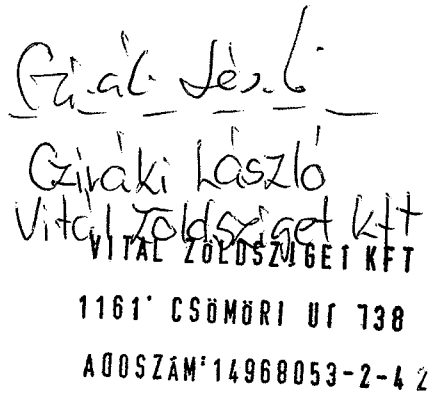 Cziráki László
Vitál Zöldsziget kft
VITÁL ZÖLDSZIGET KFT
1161' CSÖMÖRI UT 138
ADOSZÁM:14968053-2-42